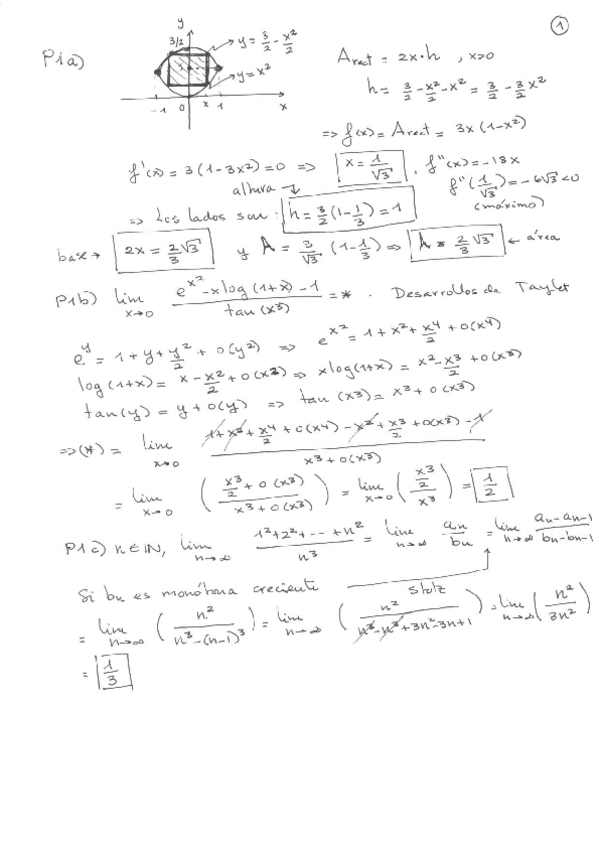 1
P1a)
y
3/2
y = 3/2 - x²/2
y = x²
-1 0 x 1 x
Arect = 2x·h , x>0
h = 3/2 - x²/2 - x² = 3/2 - 3/2 x²
=> f(x) = Arect = 3x(1-x²)
f'(x) = 3(1-3x²) = 0 => x = 1/√3 , f''(x) = -18x
f''(1/√3) = -6√3 < 0
(máximo)
altura
=> Los lados son: h = 3/2(1-1/3) = 1
base → 2x = 2/3 √3 y A = 3/√3 · (1-1/3) => A = 2/3 √3 ← área
P1b) lim x→0 (e^x² - x log(1+x) - 1)/tan(x³) = * . Desarrollos de Taylor
e^y = 1+y+y²/2 + o(y²) => e^x² = 1+x²+x⁴/2 + o(x⁴)
log(1+x) = x - x²/2 + o(x²) => x log(1+x) = x² - x³/2 + o(x³)
tan(y) = y + o(y) => tan(x³) = x³ + o(x³)
=> (*) = lim x→0 (1+x²+x⁴/2 + o(x⁴) - x² + x³/2 + o(x³) - 1)/(x³ + o(x³))
= lim x→0 ((x³/2 + o(x³))/(x³ + o(x³))) = lim x→0 ((x³/2)/x³) = 1/2
P1c) n∈ℕ, lim n→∞ (1²+2²+···+n²)/n³ = lim n→∞ an/bn = lim n→∞ (an-an-1)/(bn-bn-1)
Si bn es monótona creciente
Stolz
= lim n→∞ (n²/(n³-(n-1)³)) = lim n→∞ (n²/(n³-n³+3n²-3n+1)) = lim n→∞ (n²/3n²)
= 1/3